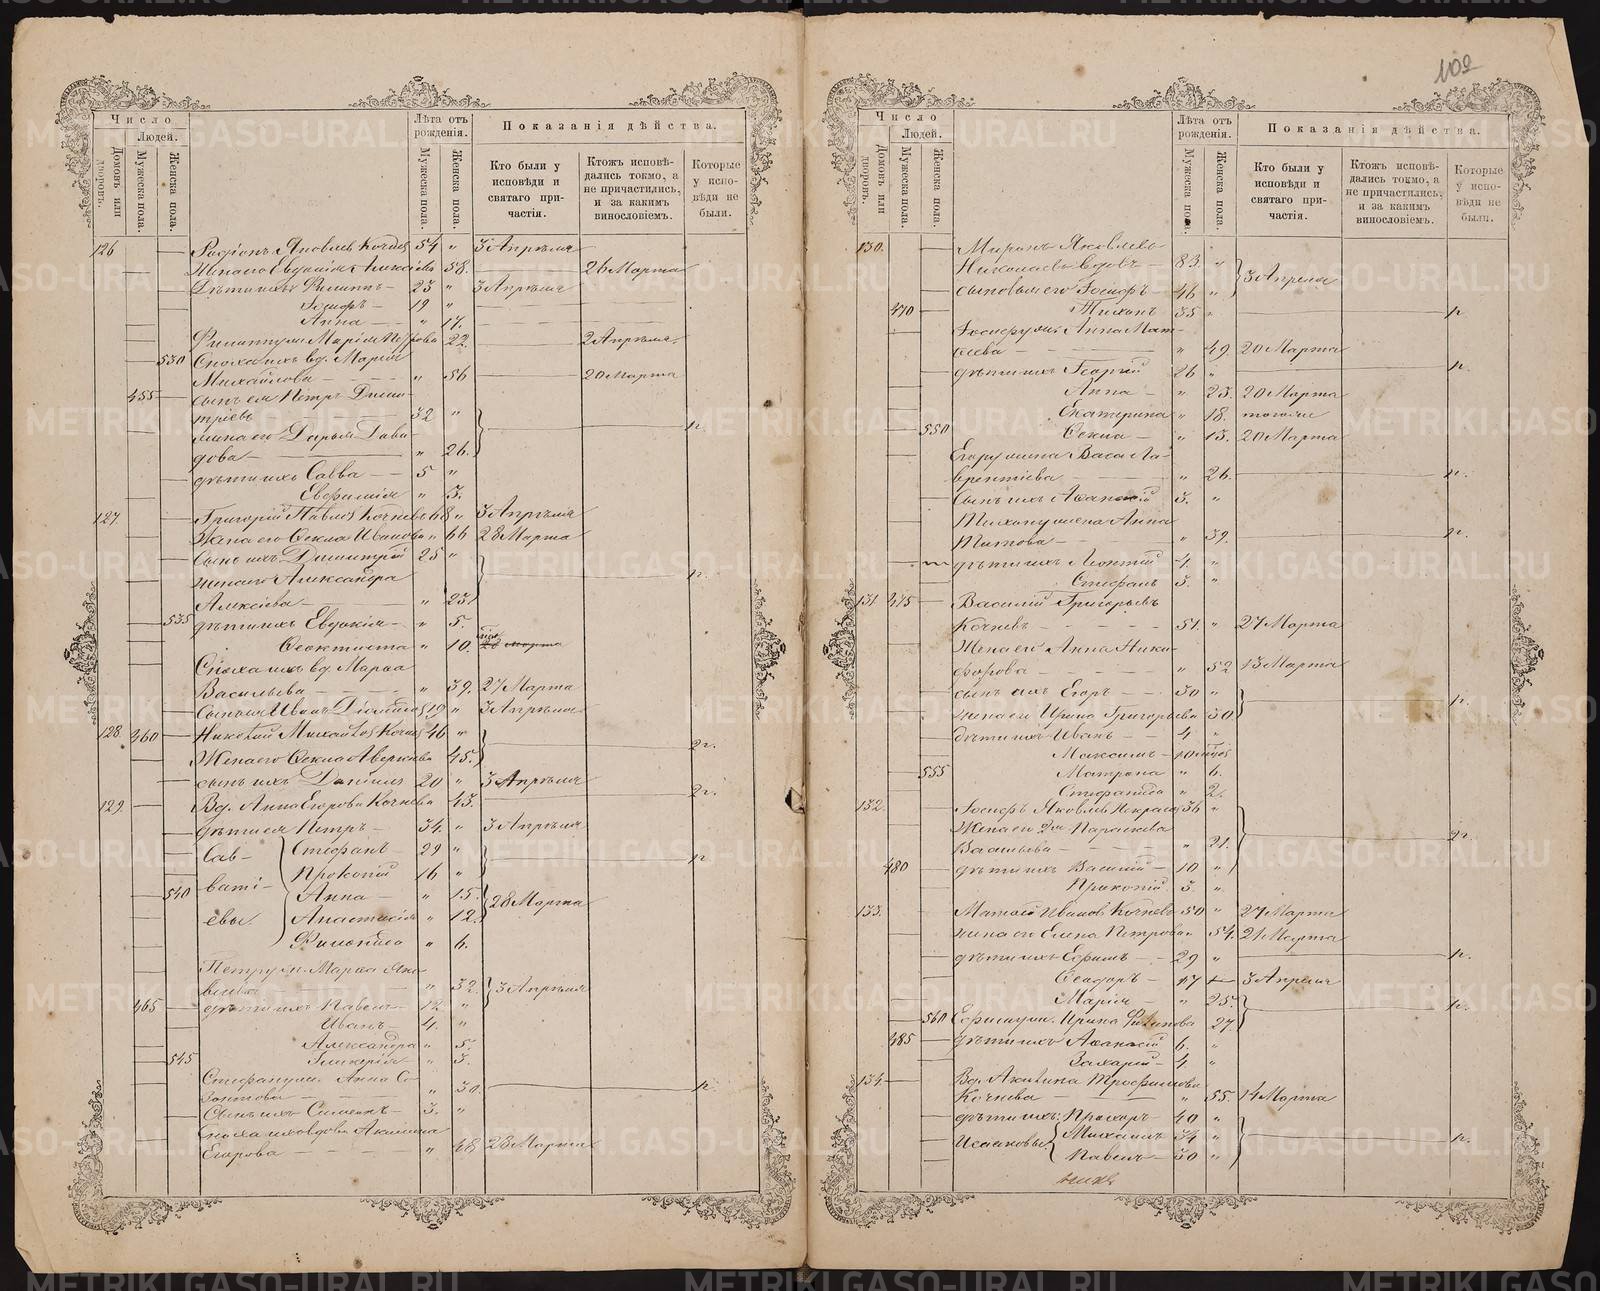 109
Число
Людей.
Домовъ или дворовъ.
Мужеска пола.
Женска пола.
Лѣта отъ рожденія.
Мужеска пола.
Женска пола.
Показанія дѣйства.
Кто были у исповѣди и святаго причастія.
Ктожъ исповѣдались токмо, а не причастились, и за какимъ винословіемъ.
Которые у исповѣди не были.
126 Яковлевъ 54 „ 3 Апрѣля
Жена его Евдокія Алексіева 58. 26 Марта
Дѣти ихъ Филиппъ 23 „ 3 Апрѣля
Іосифъ 19 „
Анна „ 17.
Филиппу ж. Марія 22. 2 Апрѣля
530 Сноха ихъ вд. Марія
Михайлова „ 56 20 Марта
455 сынъ ея Петръ Дими-
тріевъ 32 „
жена его Дарья Дави-
дова „ 26. н.
дѣти ихъ Савва 5 „
Евфимія „ 3.
127. Григорій Кочневъ 68 „ 3 Апрѣля
Жена его Ѳекла Иванова „ 66 28 Марта
Сынъ ихъ Димитрій 25 „
жена его Александра н.
Алексіева „ 23
535 дѣти ихъ Евдокія „ 5.
Ѳеоктиста „ 10.
Сноха ихъ вд. Марѳа
Васильева „ 39. 27 Марта
сынъ ея Иванъ 19 „ 3 Апрѣля
128. 460 Николай 46 „
Жена его Ѳекла 45. 2 н.
сынъ ихъ Даніилъ 20 „ 3 Апрѣля
129. Вд. Анна Егорова Кочнева 43. 2 н.
дѣти ея Петръ 34. „ 3 Апрѣля
Сав- Стефанъ 29 „
Прокопій 16 „ н
540 вати- Анна „ 15.
евы. Анастасія „ 12. 28 Марта
„ 6.
Петру ж. Марѳа Яко
„ 32. 3 Апрѣля
465 дѣти ихъ Павелъ 12 „
Иванъ 4. „
Александра „ 5.
545 Гликерія „ 3.
Стефану ж. Анна Со-
зонтова „ 30. н.
Сынъ ихъ Симеонъ 3. „
Сноха ихъ вдова Акилина
Егорова „ 48 28 Марта
Число
Людей.
Домовъ или дворовъ.
Мужеска пола.
Женска пола.
Лѣта отъ рожденія.
Мужеска пола.
Женска пола.
Показанія дѣйства.
Кто были у исповѣди и святаго причастія.
Ктожъ исповѣдались токмо, а не причастились, и за какимъ винословіемъ.
Которые у исповѣди не были.
130. Миронъ Яковлевъ
Николаевъ вдовъ 83. „
сыновья его Іосифъ 46 „ 3 Апреля
470 Тихонъ 35 „ н.
Іосифу ж. Анна Мат-
ѳеева „ 49. 20 Марта
дѣти ихъ Георгій 26 „ н.
Анна „ 23. 20 Марта
Екатерина „ 18.
550 Ѳекла „ 13. 20 Марта
Егору жена Васса Ла-
врентіева „ 26. н.
Сынъ ихъ Аѳанасій 3. „
Тихону жена Анна
Титова „ 39. н.
дѣти ихъ Леонтій 4. „
Стефанъ 3. „
131 475 Василій Григорьевъ
Кочневъ 51. „ 27 Марта
Жена его Анна Ники-
форова „ 52 13 Марта
сынъ ихъ Егоръ 30 „
жена его Ирина Григорьева 30. н.
дѣти ихъ Иванъ 4 „
Максимъ
555 Матрона „ 6.
Стефанида „ 2.
132. Іосифъ Яковлевъ Некрасовъ 36 „
Жена его 2я Параскева
Васильева „ 21. 2 н.
480 дѣти ихъ Василій 10 „
Прокопій 3. „
133. Матвѣй Ивановъ Кочневъ 50 „ 27 Марта
жена его Елена Петрова „ 54. 21 Марта
дѣти ихъ Ефимъ 29 „ н.
Ѳеодоръ 17 3 Апреля
Марія „ 25. н.
560 Ефиму ж. Ирина Филипова 27.
485 дѣти ихъ Аѳанасій 6. „
Захарій 4 „
134. Вд. Акилина Трофимова
Кочнева „ 55. 14 Марта
дѣти ихъ: Прохоръ 40 „
Исааковы Михаилъ 34 „ н.
Павелъ 30 „